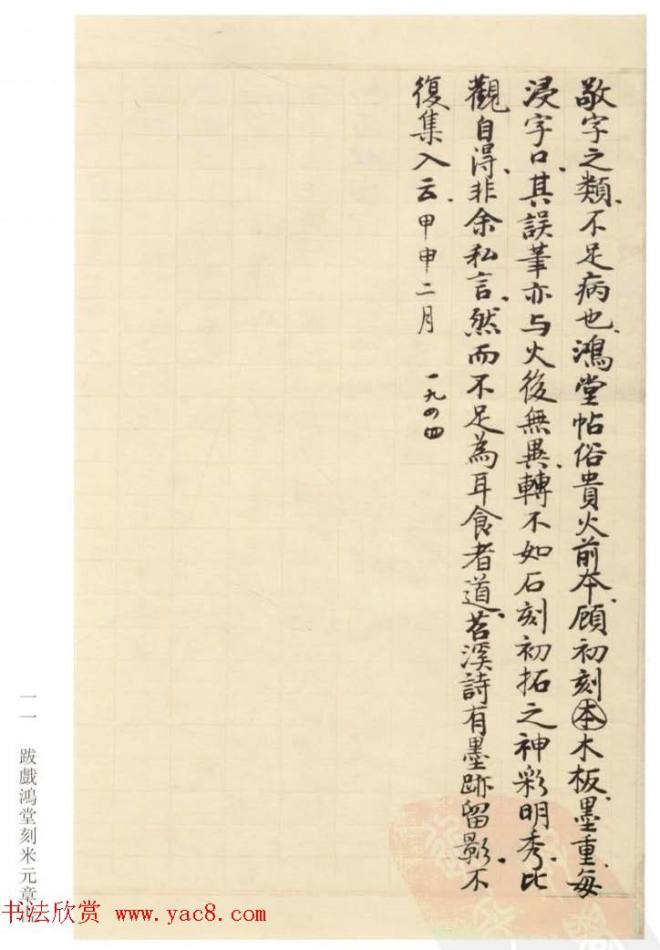 敬字之類、不足病也、鴻堂帖俗貴火前本、顧初刻本木板、墨重每
浸字口、其誤筆亦与火後無異、轉不如石刻初拓之神彩明秀、比
觀自得、非余私言、然而不足為耳食者道、苕溪詩有墨跡留影、不
復集入云、甲申二月 一九四四
一一 跋戲鴻堂刻米元章
书法欣赏 www.yac8.com